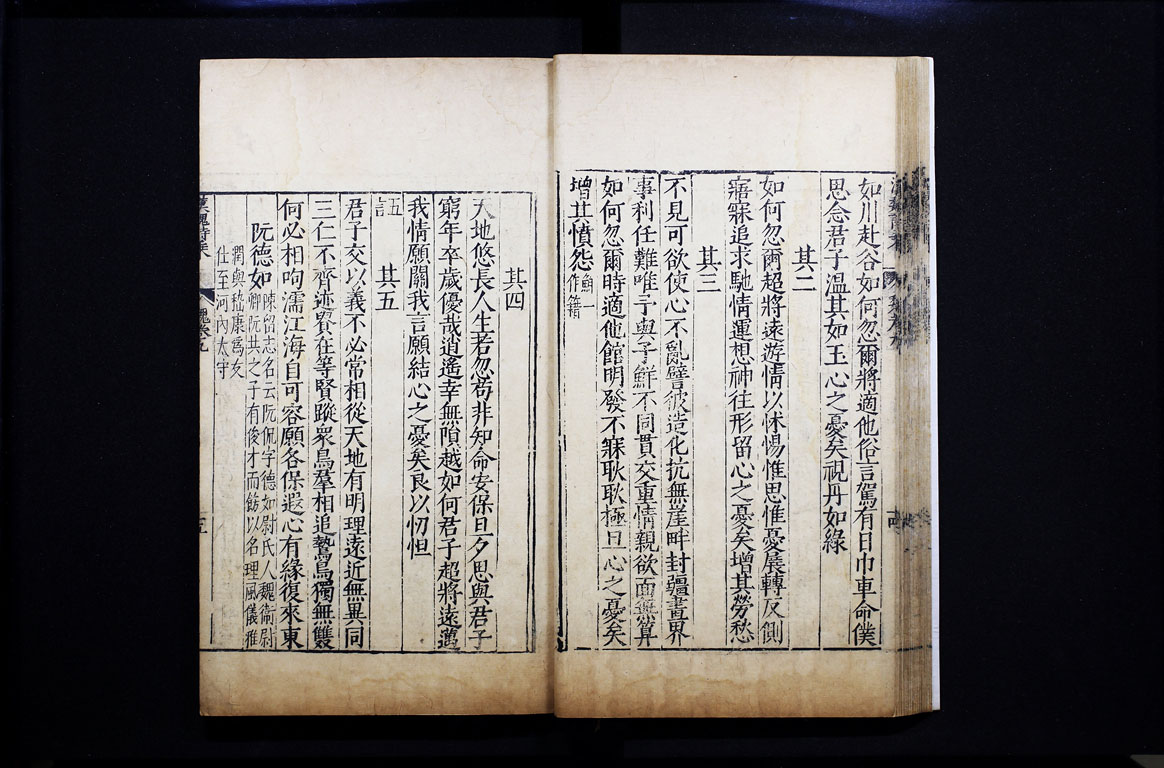 如川赴谷如何忽爾將適他俗言駕有日巾車命僕
思念君子溫其如玉心之憂矣視丹如綠
其二
如何忽爾超將遠遊情以怵惕惟思惟憂展轉反側
寤寐追求馳情運想神往形留心之憂矣增其勞愁
其三
不見可欲使心不亂譬彼造化抗無崖畔封疆畫界
事利任難唯予與子鮮不同貫交重情親欲面無筭
如何忽爾時適他館明發不寐耿耿極旦心之憂矣
增其憤怨
其四
天地悠長人生若忽苟非知命安保旦夕思與君子
窮年卒歲優哉逍遙幸無隕越如何君子超將遠邁
我情願關我言願結心之憂矣良以忉怛
其五
君子交以義不必常相從天地有明理遠近無異同
三仁不齊迹貴在等賢蹤眾鳥羣相追鷙鳥獨無雙
何必相呴濡江海自可容願各保遐心有緣復來東
阮德如
陳留志名云阮侃字德如尉氏人魏衛尉
卿阮共之子有俊才而飭以名理風儀雅
潤與嵇康為友
仕至河內太守